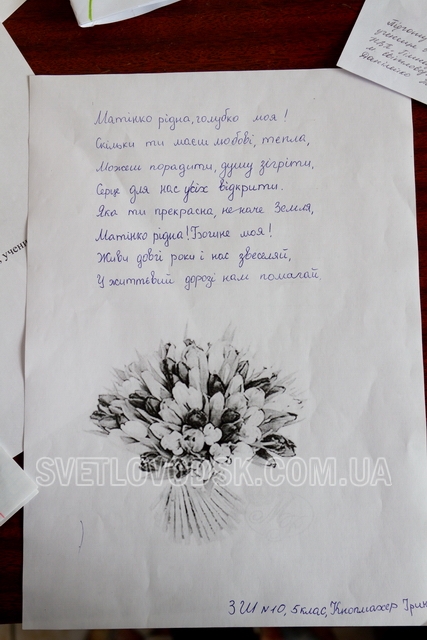 Матінко рідна, голубко моя!
Скільки ти маєш любові, тепла,
Можеш порадити, душу зігріти,
Серце для нас усіх відкрити.
Яка ти прекрасна, не наче Земля,
Матінко рідна! Богине моя!
Живи довгі роки і нас звеселяй,
У життєвій дорозі нам помагай.
SVETLOVODSK.COM.UA
ЗШ №10, 5 клас, Кнопмахер Ірин
, учени